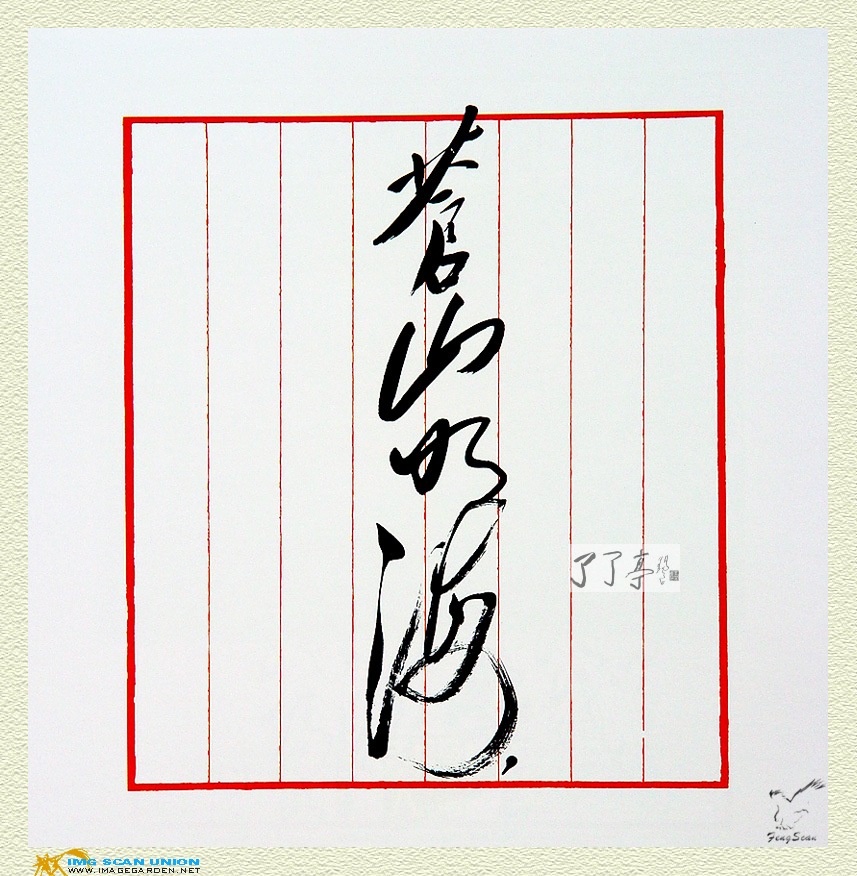 蒼山如海，
了了亭
FengScan
IMG SCAN UNION
WWW.IMAGEGARDEN.NET